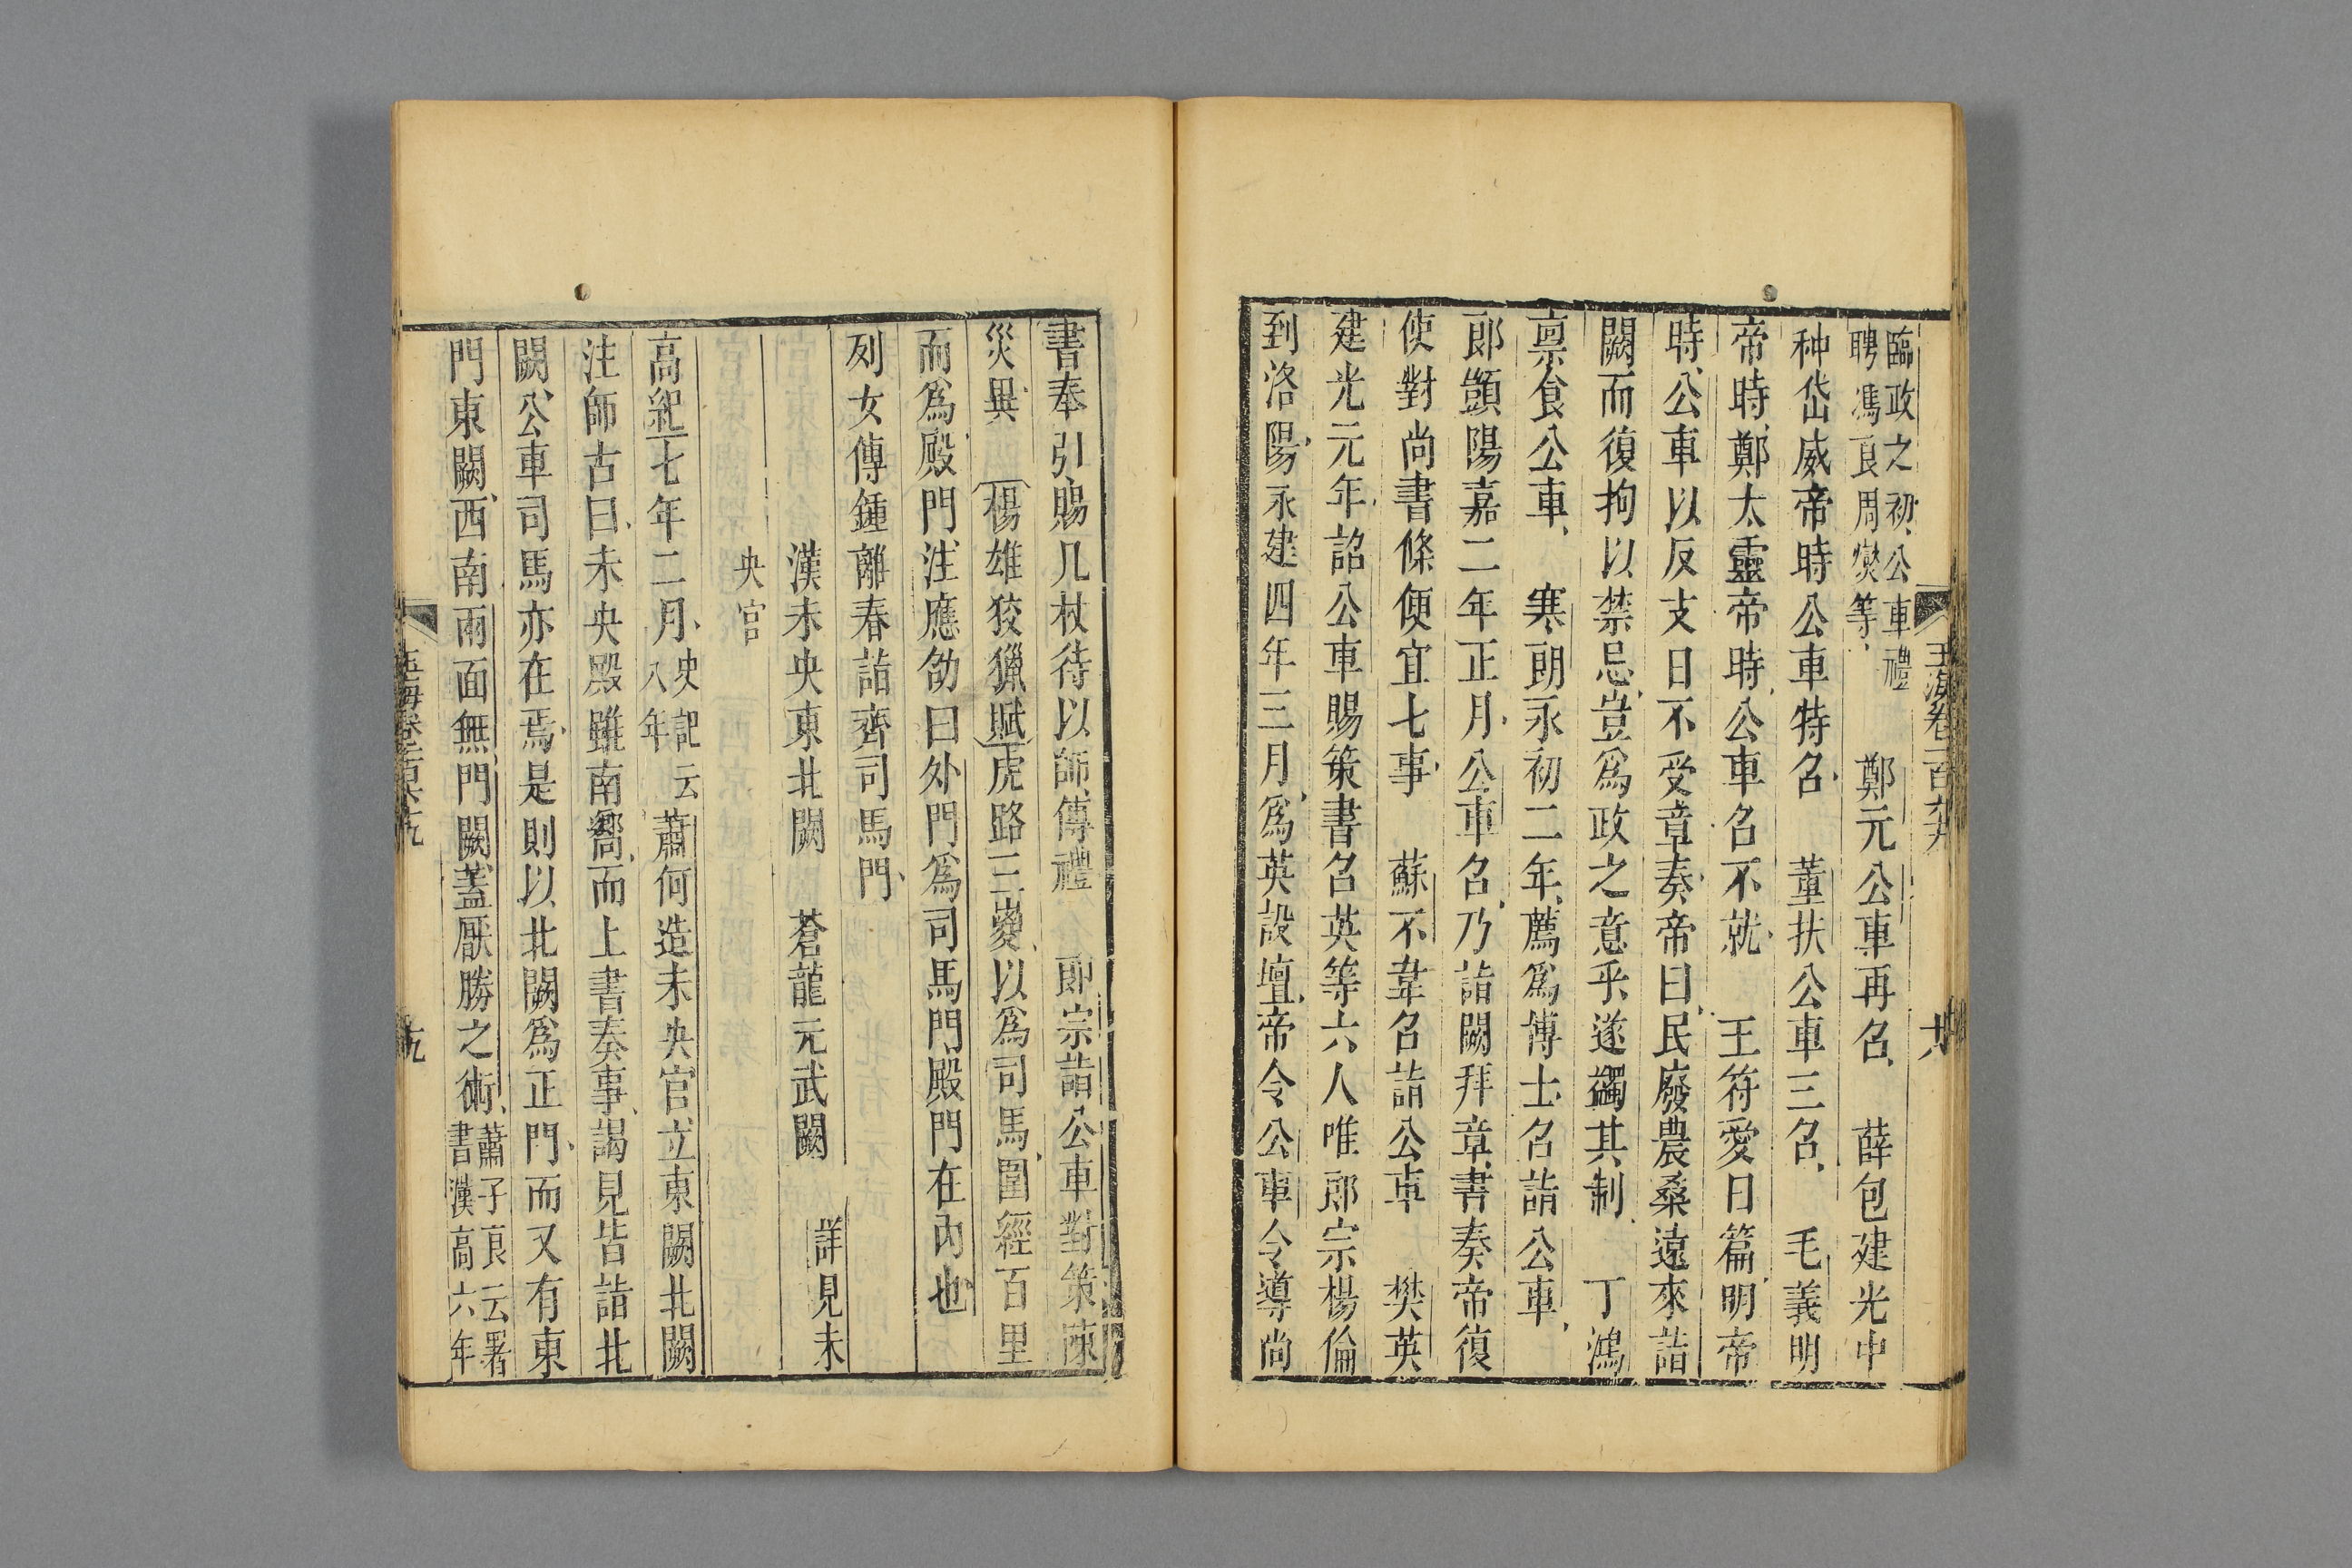 玉海卷一百六十九
十八
臨政之初公車禮
聘馮良周燮等
鄭元公車再名 薛包建光中
种岱威帝時公車特名 董扶公車三名 毛義明
帝時鄭太靈帝時公車名不就 王符愛日篇明帝
時公車以反支日不受章奏帝曰民廢農桑遠來詣
闕而復拘以禁忌豈爲政之意乎遂蠲其制 丁鴻
禀食公車 寒朗永初二年薦爲博士名詣公車
郎顗陽嘉二年正月公車名乃詣闕拜章書奏帝復
使對尚書條便宜七事 蘇不韋名詣公車 樊英
建光元年詔公車賜策書名英等六人唯郎宗楊倫
到洛陽永建四年三月爲英設壇帝令公車令導尚
書奉引賜几杖待以師傅禮 郎宗詣公車對策陳
災異 楊雄狡獵賦虎路三嵏以爲司馬圍經百里
而爲殿門注應劭曰外門爲司馬門殿門在內也
列女傳鍾離春詣齊司馬門
漢未央東北闕 蒼龍元武闕 詳見未
央宫
高紀七年二月
史記云
八年
蕭何造未央宮立東闕北闕
注師古曰未央殿雖南嚮而上書奏事謁見皆詣北
闕公車司馬亦在焉是則以北闕爲正門而又有東
門東闕西南兩面無門闕蓋厭勝之術
蕭子良云署
書漢高六年
十九